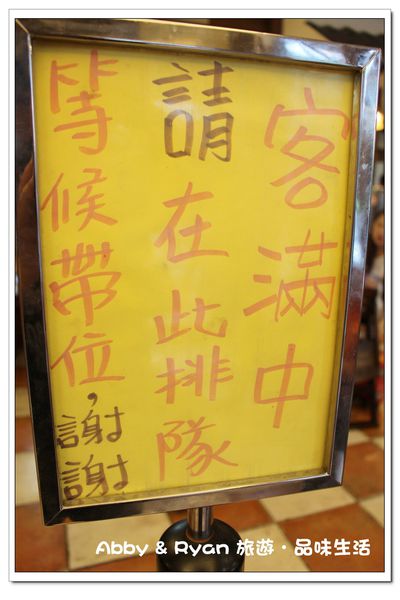 客滿中
請在此排隊
等候帶位,謝謝
Abby & Ryan 旅遊・品味生活